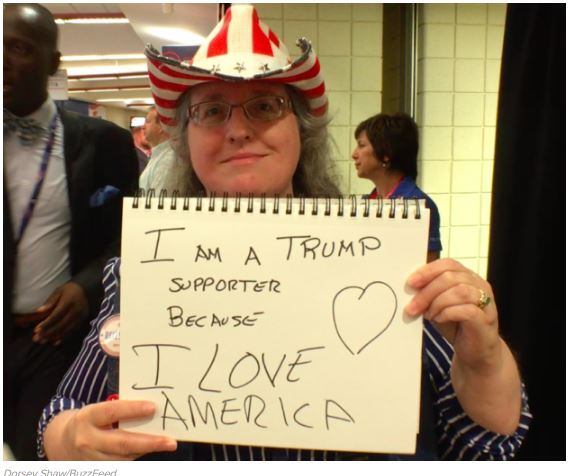 I AM A TRUMP
SUPPORTER
BECAUSE
I LOVE
AMERICA
Dorsey Shaw/BuzzFeed